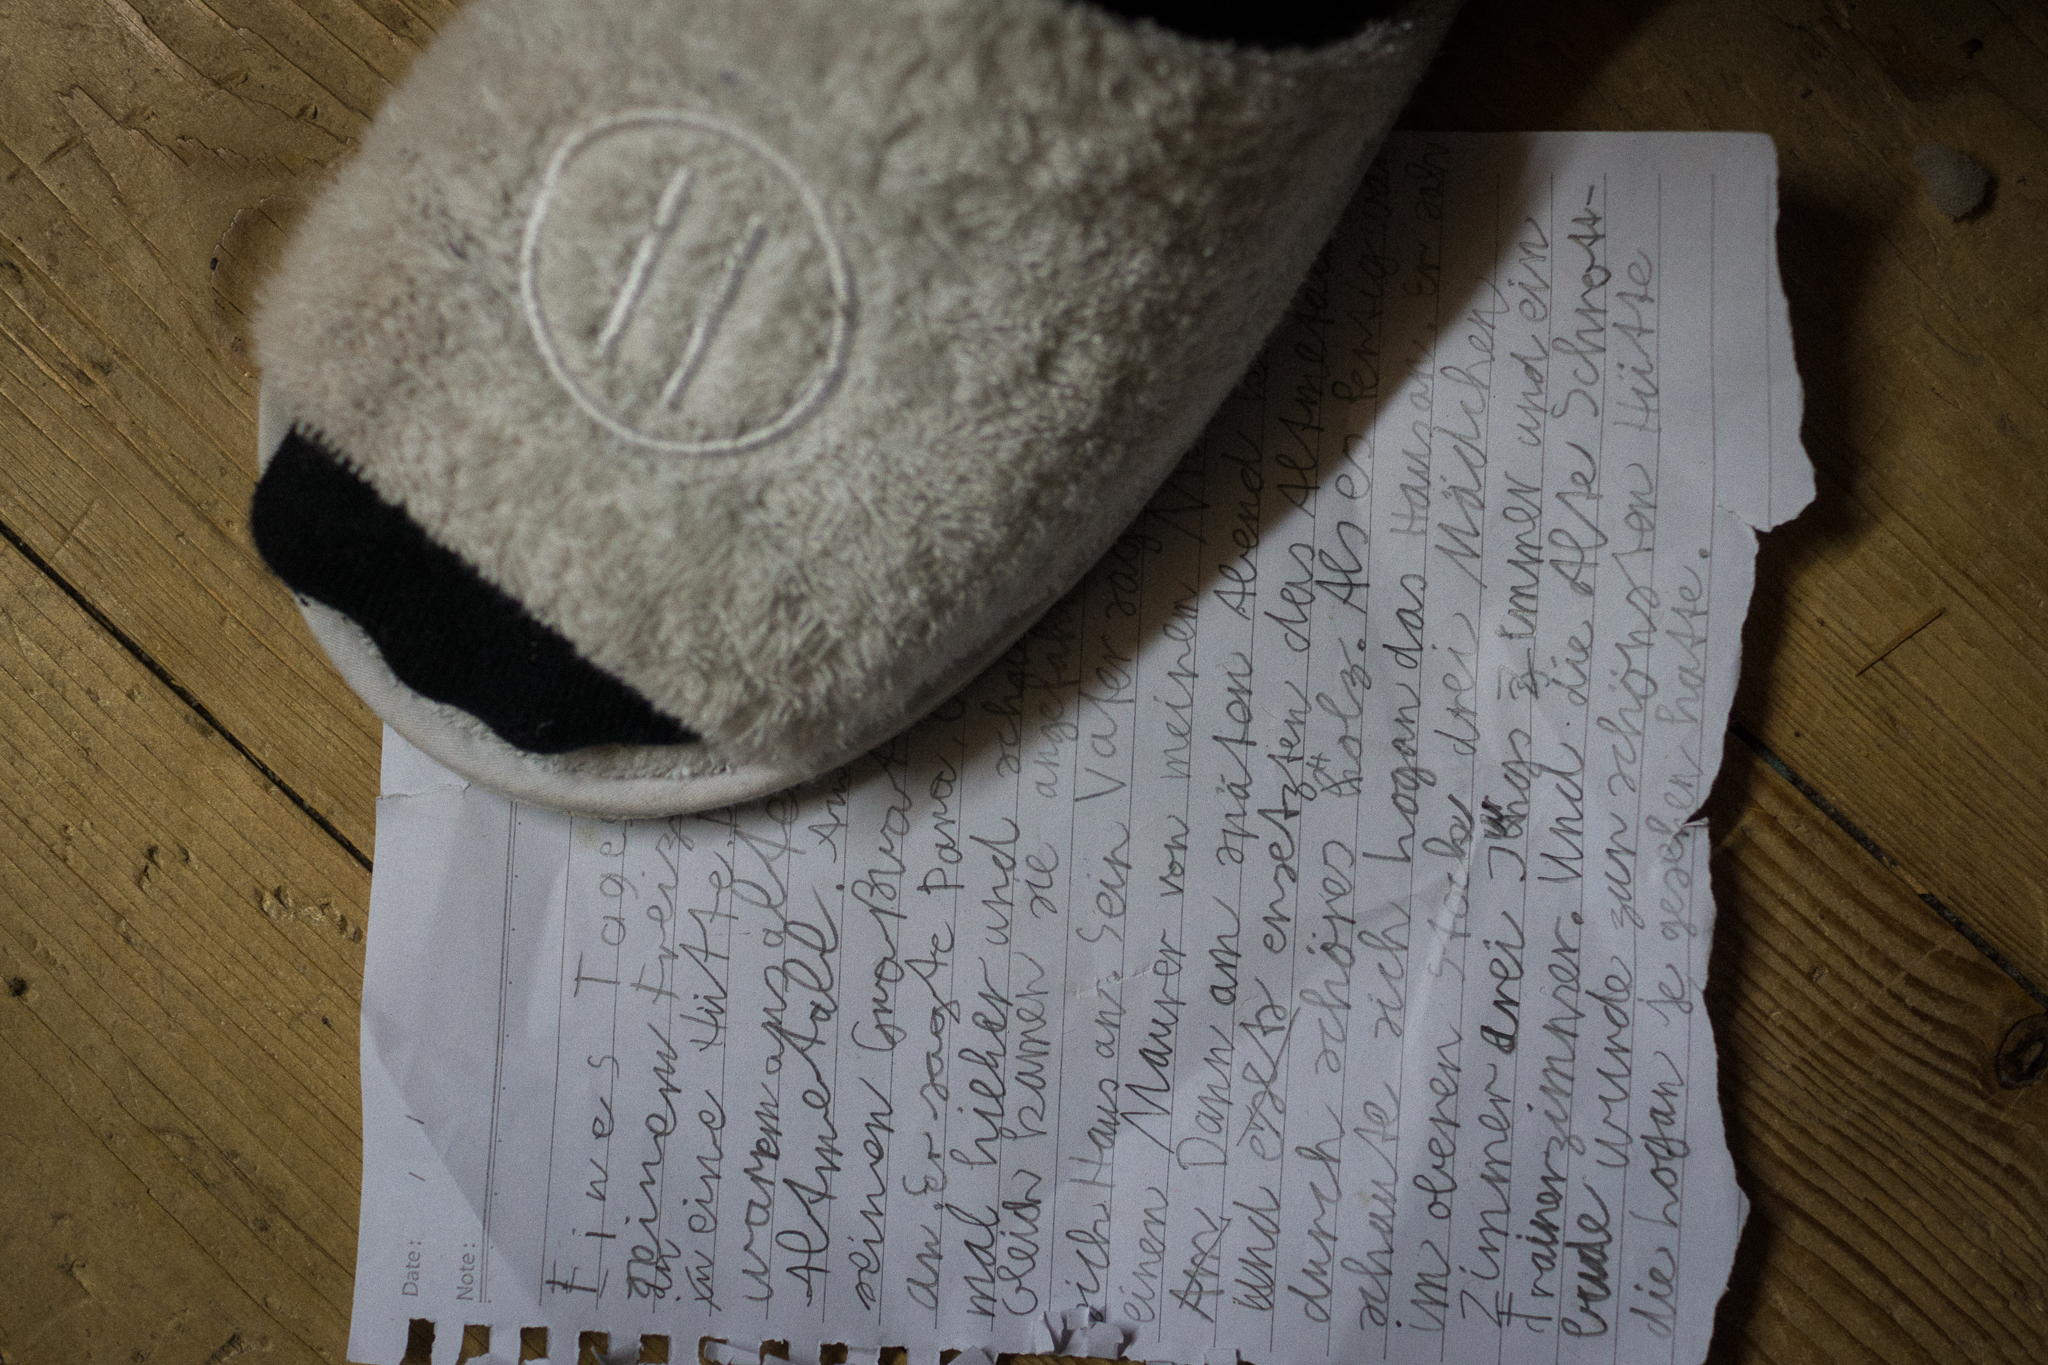 Date: / /
Note:
Eines Tage
in seinem Freiz
meine Hütte,
waren aus alte
Altmetall. Am
seinen Großvat
an. Er sagte Para
mal hieher und schau
Gleich kamen sie angefah
sich Haus an. Sein Vater sag
einen Maurer von meinen
Am Dann am späten Abend k
und ersetzten das Altmetal
durch schöjes holz. Als er fertig wa
schaute sich hogan das Haus an. Er sah
im oberen Stock drei Mädchen
Zimmer drei Jungs Zimmer und ein
Trainerzimmer. Und die Alte Schrott-
bude wurde zur schönsten Hütte
die hogan je gesehen hatte.